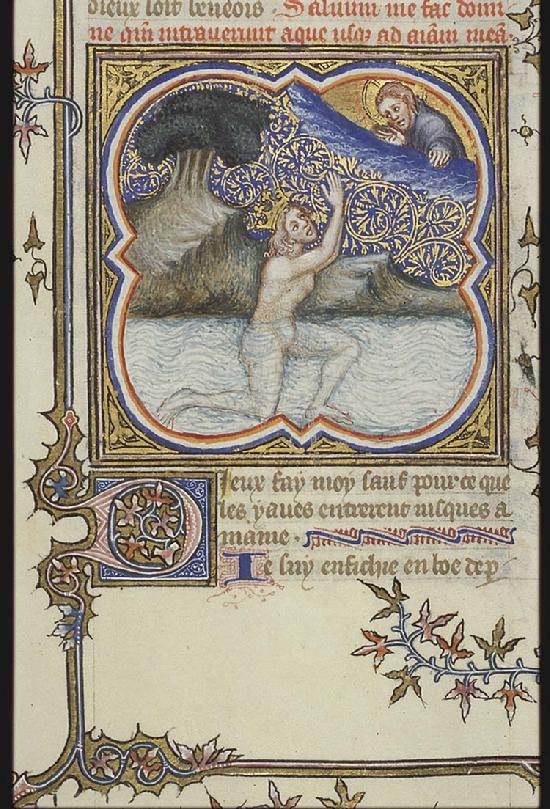 dieux soit beneois. Saluum me fac domi
ne qm̄ intrauerunt aque usq ad aiām meā
Dieux fay moy sauf pour ce que
les yaues entrerent iusques a
mame.
Ie suy enfichie en boe de p